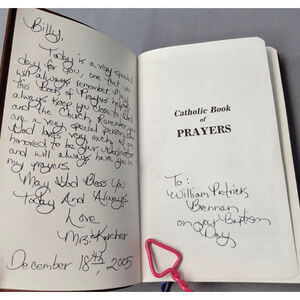 Billy,
Today is a very special
day for you, one that we
will always remember. May
this Book of Prayers help
always keep you close to God
and the Church. Remember you
are a very special person and
God loves you very much. I am
honored to be your Godmother
and will always have you in
my prayers.
May God Bless You
Today And Always
Love
Mrs. Karcher
December 18th, 2005
Catholic Book
of
PRAYERS
To:
William Patrick
Brennan
on your Baptism
Day